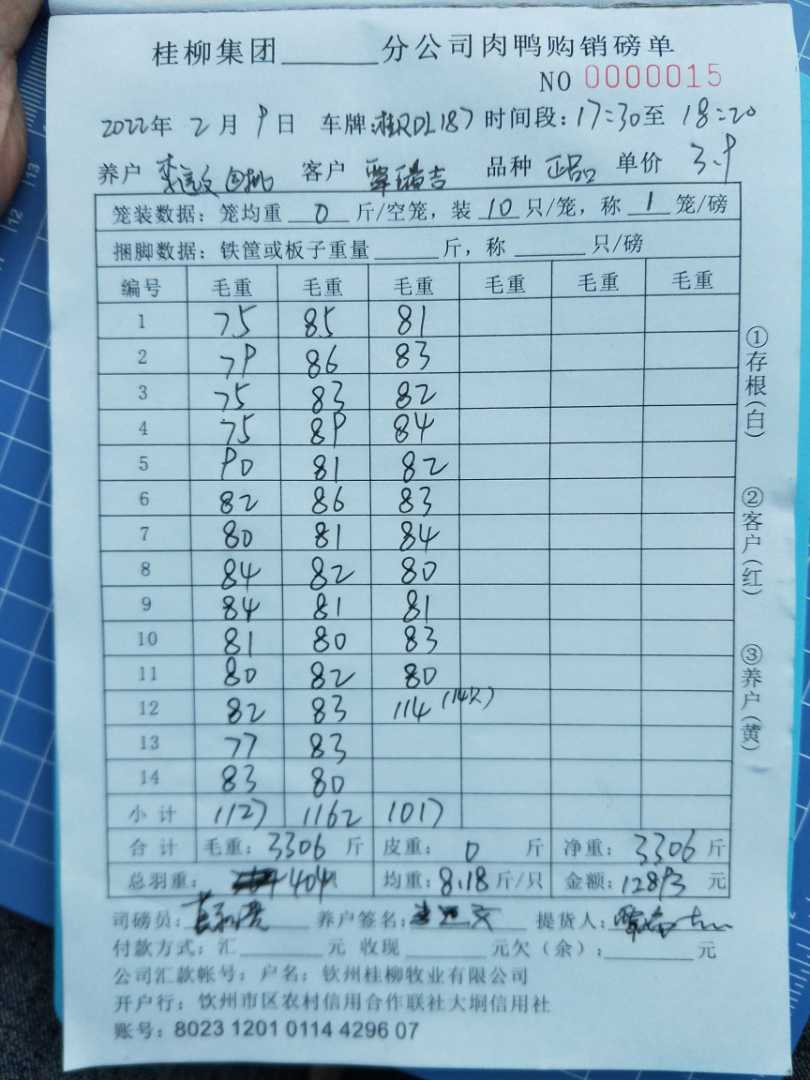 桂柳集团______分公司肉鸭购销磅单
NO 0000015
2022年 2月 9日 车牌:桂RDL187 时间段:17:30至 18:20
养户 客户 覃瑞吉 品种 正品 单价 3.9
笼装数据:笼均重 0 斤/空笼,装 10 只/笼,称 1 笼/磅
捆脚数据:铁筐或板子重量______斤,称______只/磅
编号 毛重 毛重 毛重 毛重 毛重 毛重
1 75 85 81
2 79 86 83
3 75 83 82
4 75 89 84
5 90 81 82
6 82 86 83
7 80 81 84
8 84 82 80
9 84 81 81
10 81 80 83
11 80 82 80
12 82 83 114 (14只)
13 77 83
14 83 80
小计 1127 1162 1017
合计 毛重:3306 斤 皮重: 0 斤 净重: 3306 斤
总羽重: 404 只 均重:8.18斤/只 金额:12893 元
司磅员: 养户签名: 提货人:
付款方式:汇______元 收现______元欠(余):______元
公司汇款帐号:户名:钦州桂柳牧业有限公司
开户行:钦州市区农村信用合作联社大垌信用社
账号:8023 1201 0114 4296 07
①存根(白)
②客户(红)
③养户(黄)